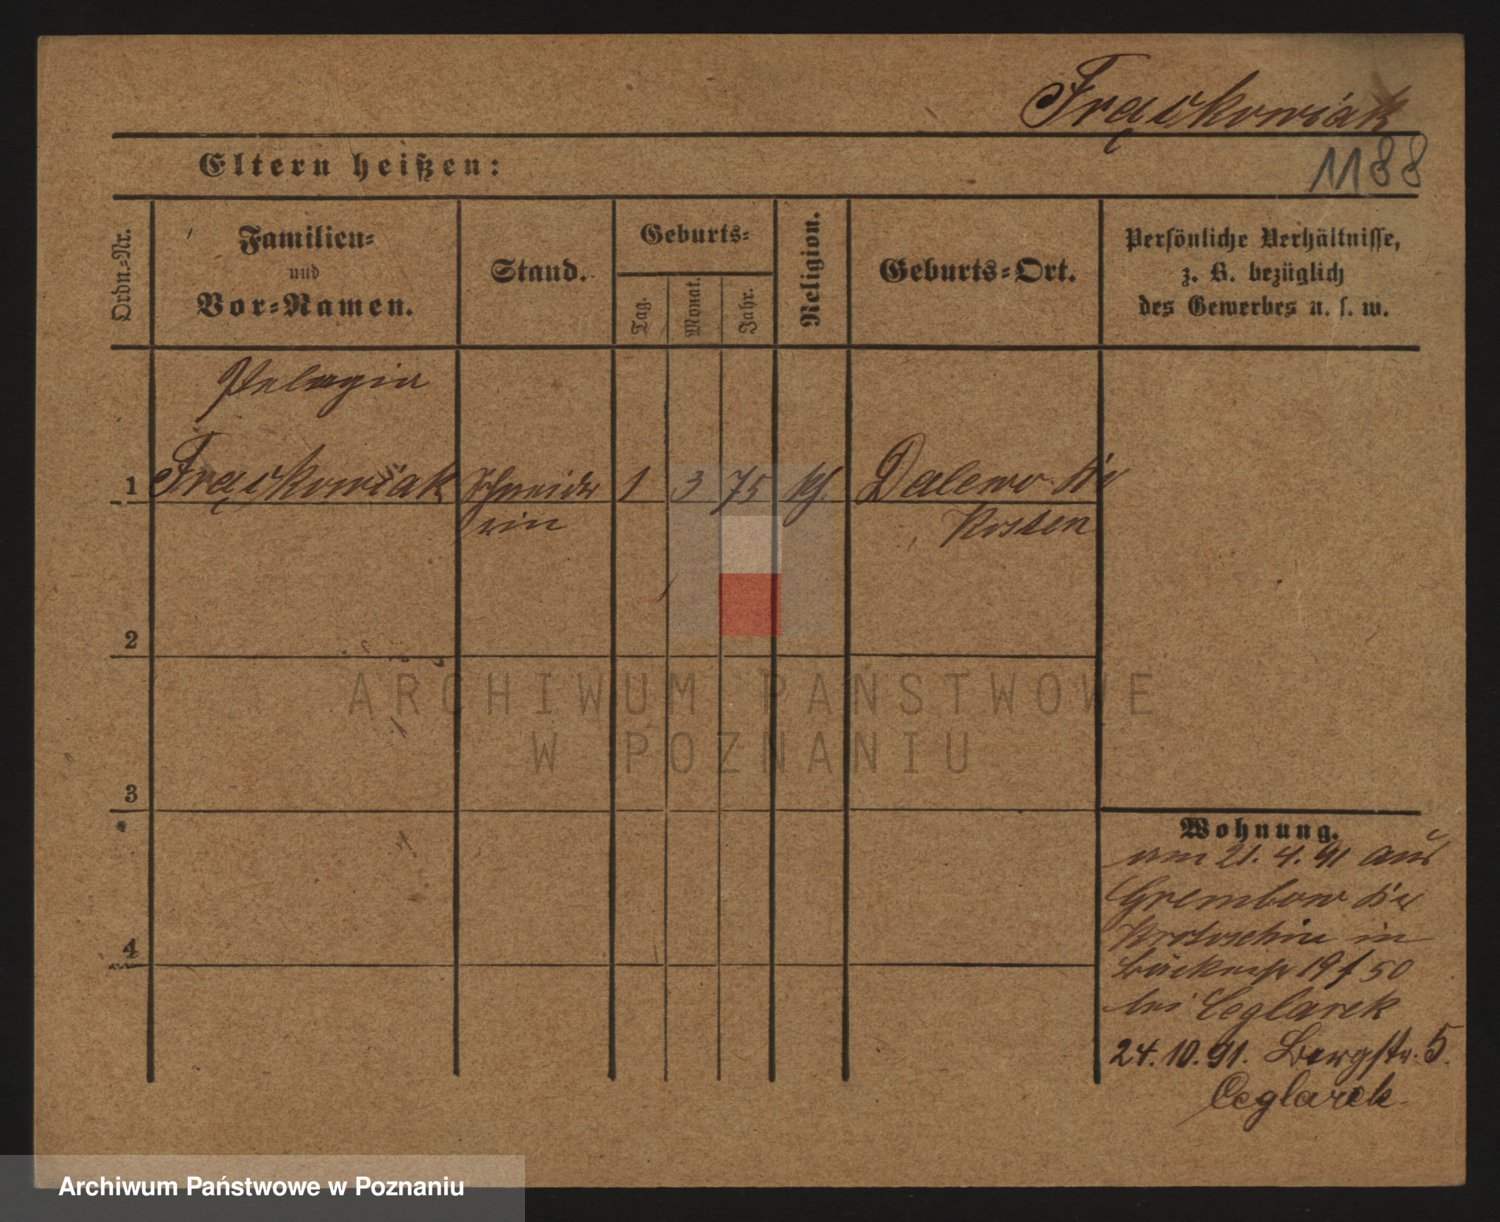 Frąckowiak
Eltern heißen:
1188
Ordn.-Nr.
Familien-
und
Vor-Namen.
Stand.
Geburts-
Tag.
Monat.
Jahr.
Religion.
Geburts-Ort.
Persönliche Verhältnisse,
z. B. bezüglich
des Gewerbes u. s. w.
Pelagia
1 Frąckowiak Schneider 1 3 75 kf. Dalewo Kr
rin Kosten
2
3
4
Wohnung.
am 21. 4. 91 aus
Grembow Kr
Krotoschin in
19 / 50
bei Ceglarek
24. 10. 91. Bergstr. 5.
Ceglarek
ARCHIWUM PAŃSTWOWE
W POZNANIU
Archiwum Państwowe w Poznaniu